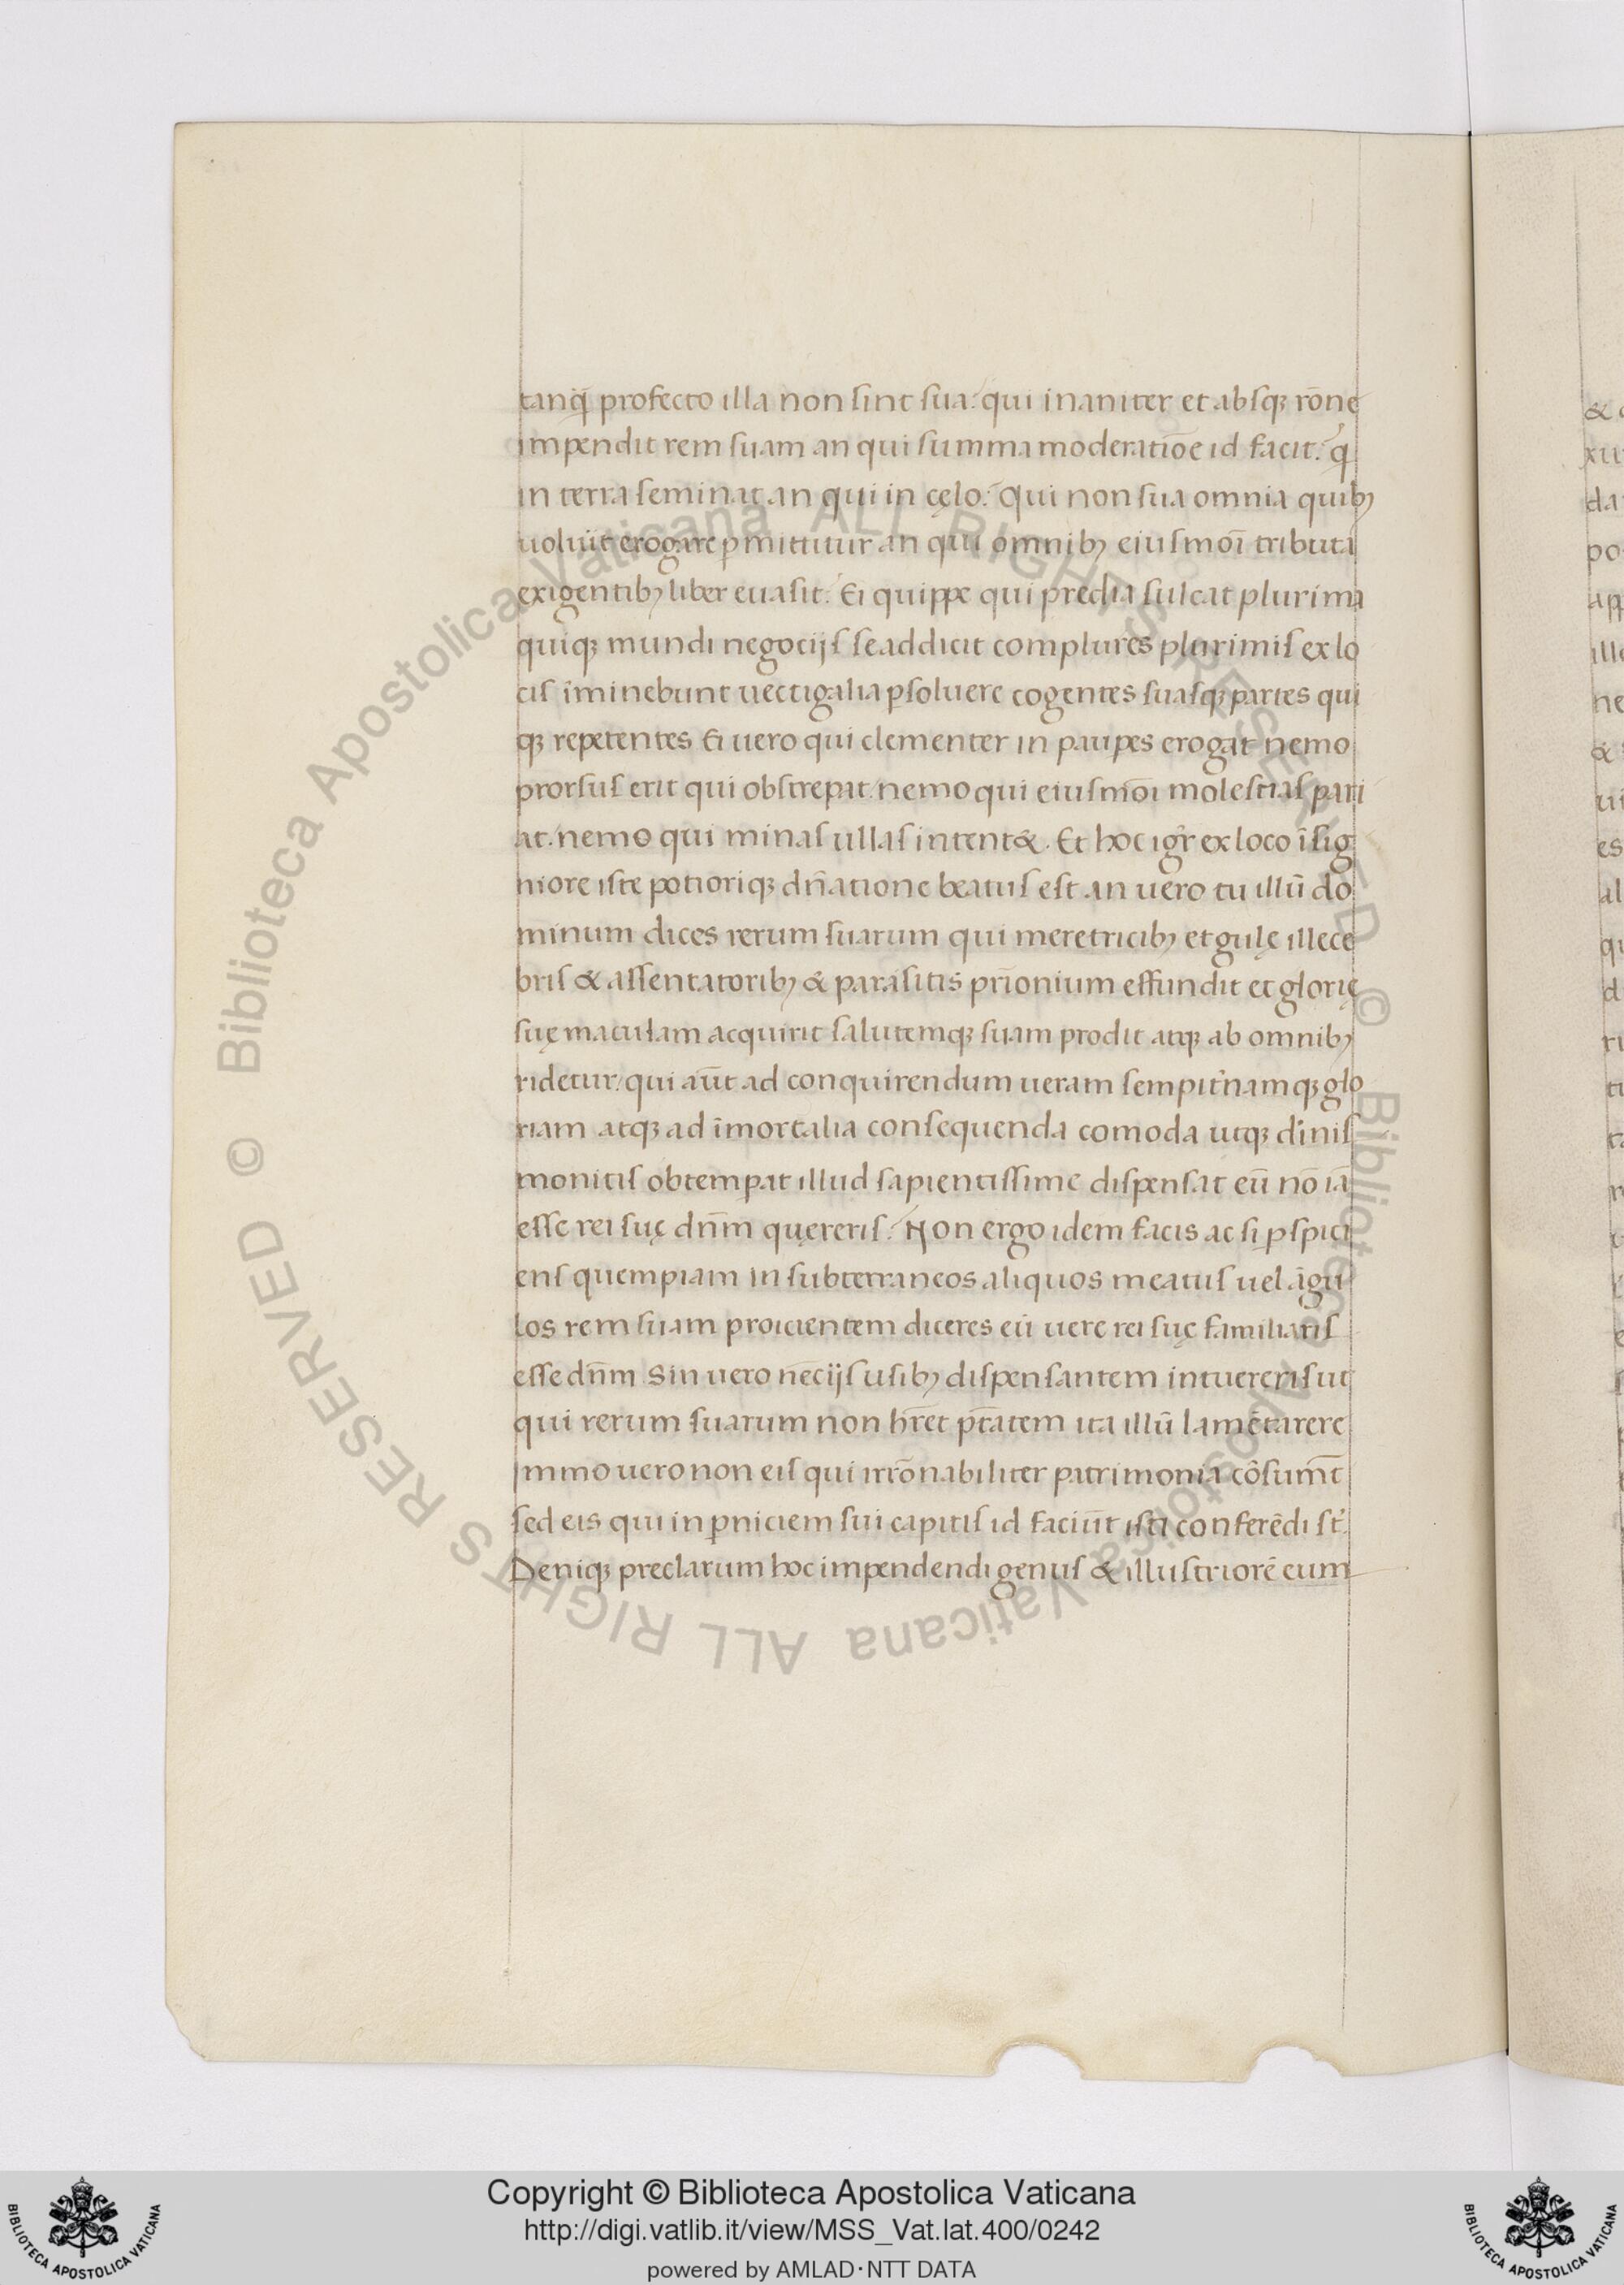 tanq̃ profecto illa non ſint ſua? qui inaniter et abſqꝫ rõne
impendit rem ſuam an qui ſumma moderatiõe id facit? q
in terra ſeminat an qui in cęlo? Qui non ſua omnia quibꝫ
uoluit erogare ꝑmittitur an qui omnibꝫ eiuſmoī tributa
exigentibꝫ liber euaſit? Ei quippe qui predia ſulcat plurima
quiqꝫ mundi negocijſ ſe addicit complures plurimiſ ex lo
ciſ īminebunt uectigalia ꝑſoluere cogentes ſuaſqꝫ partes qui
qꝫ repetentes Ei uero qui clementer in pauꝑes erogat nemo
prorſuſ erit qui obſtrepat. nemo qui eiuſmoī moleſtiaſ pari
at. nemo qui minaſ ullaſ intent&. Et hoc igr̃ ex loco īſig
niore iſte potioriqꝫ dn̄atione beatuſ eſt. an uero tu illū do
minum dices rerum ſuarum qui meretricibꝫ et gulę illece
briſ & aſſentatoribꝫ & paraſitis prīonium effundit et glorię
ſuę maculam acquirit ſalutemqꝫ ſuam prodit atqꝫ ab omnibꝫ
ridetur, qui aūt ad conquirendum ueram ſempit̃namqꝫ glo
riam atqꝫ ad īmortalia conſequenda comoda utqꝫ diniſ
monitiſ obtemꝑat illud ſapientiſſime diſpenſat eū nō iā
eſſe rei ſuę dn̄m quęreriſ? Non ergo idem facis ac ſi ꝑſpici
enſ quempiam in ſubterraneos aliquos meatuſ uel āgu
los rem ſuam proicientem diceres eū uere rei ſuę familiariſ
eſſe dn̄m Sin uero nēcijſ uſibꝫ diſpenſantem intuereriſ ut
qui rerum ſuarum non hr̄et pt̄atem ita illū lamētarere
immo uero non eiſ qui irrōnabiliter patrimonia cōſumt̄
ſed eis qui in ꝑniciem ſui capitiſ id faciūt iſti conferēdi ſt̃.
Deniqꝫ preclarum hoc impendendi genuſ & illuſtriorē eum
Copyright © Biblioteca Apostolica Vaticana
http://digi.vatlib.it/view/MSS_Vat.lat.400/0242
powered by AMLAD·NTT DATA